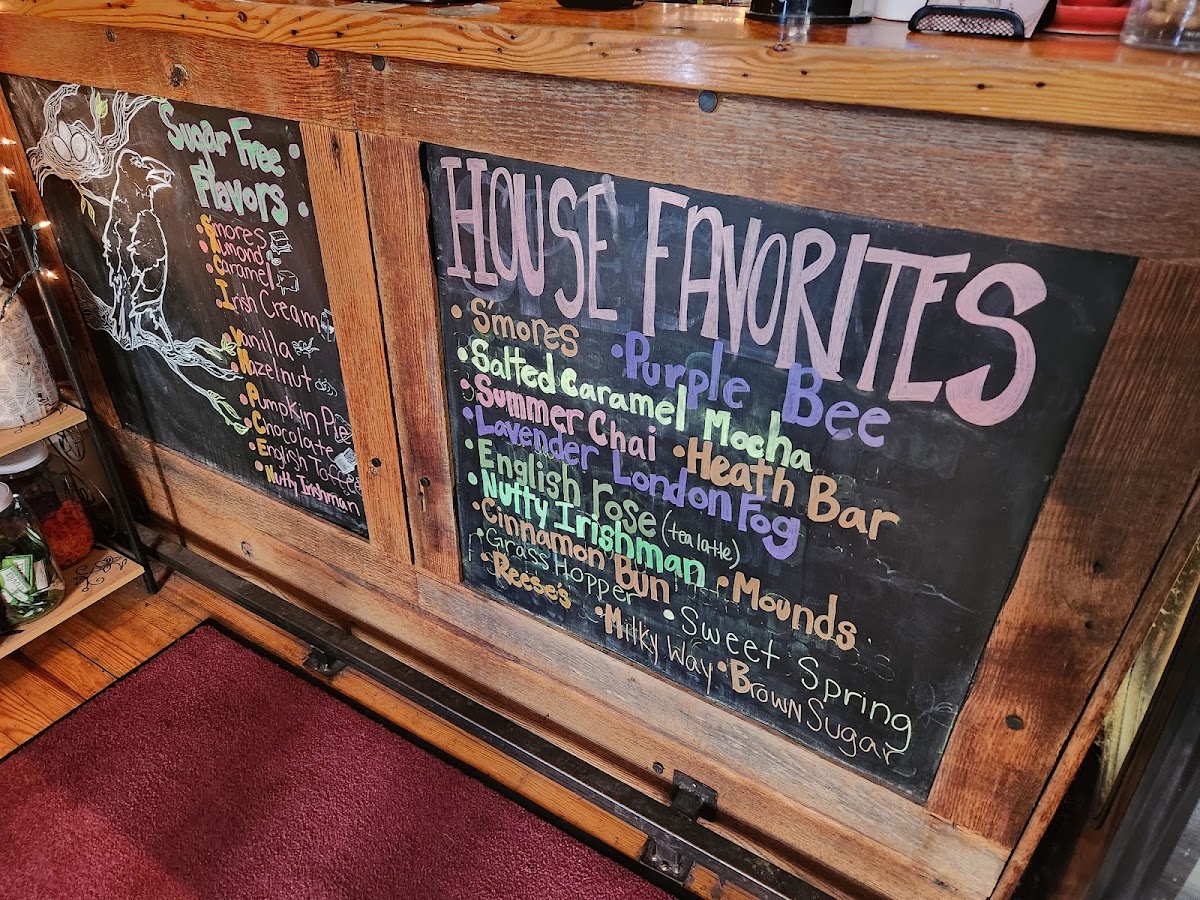 Sugar Free
Flavors
• Smores
• Almond
• Caramel
• Irish Cream
• Vanilla
• Hazelnut
• Pumpkin Pie
• Chocolate
• English Toffee
• Nutty Irishman
HOUSE FAVORITES
• Smores
• Purple Bee
• Salted Caramel Mocha
• Summer Chai
• Heath Bar
• Lavender London Fog
• English Rose (tea latte)
• Nutty Irishman
• Mounds
• Cinnamon Bun
• Grass Hopper
• Sweet Spring
• Reese's
• Milky Way
• Brown Sugar